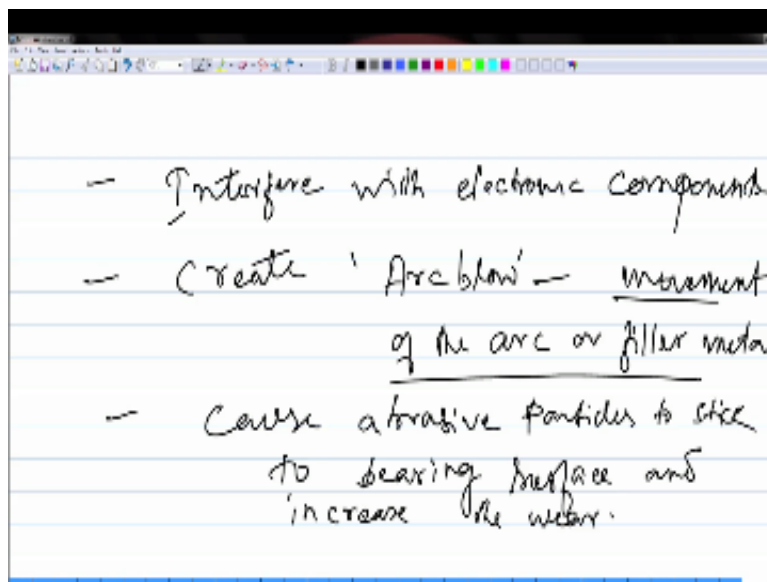 - Interfere with electronic components
- Create 'Arc blow' - movement
of the arc or filler meta
- Cause abrasive particles to stick
to bearing surface and
increase the wear.